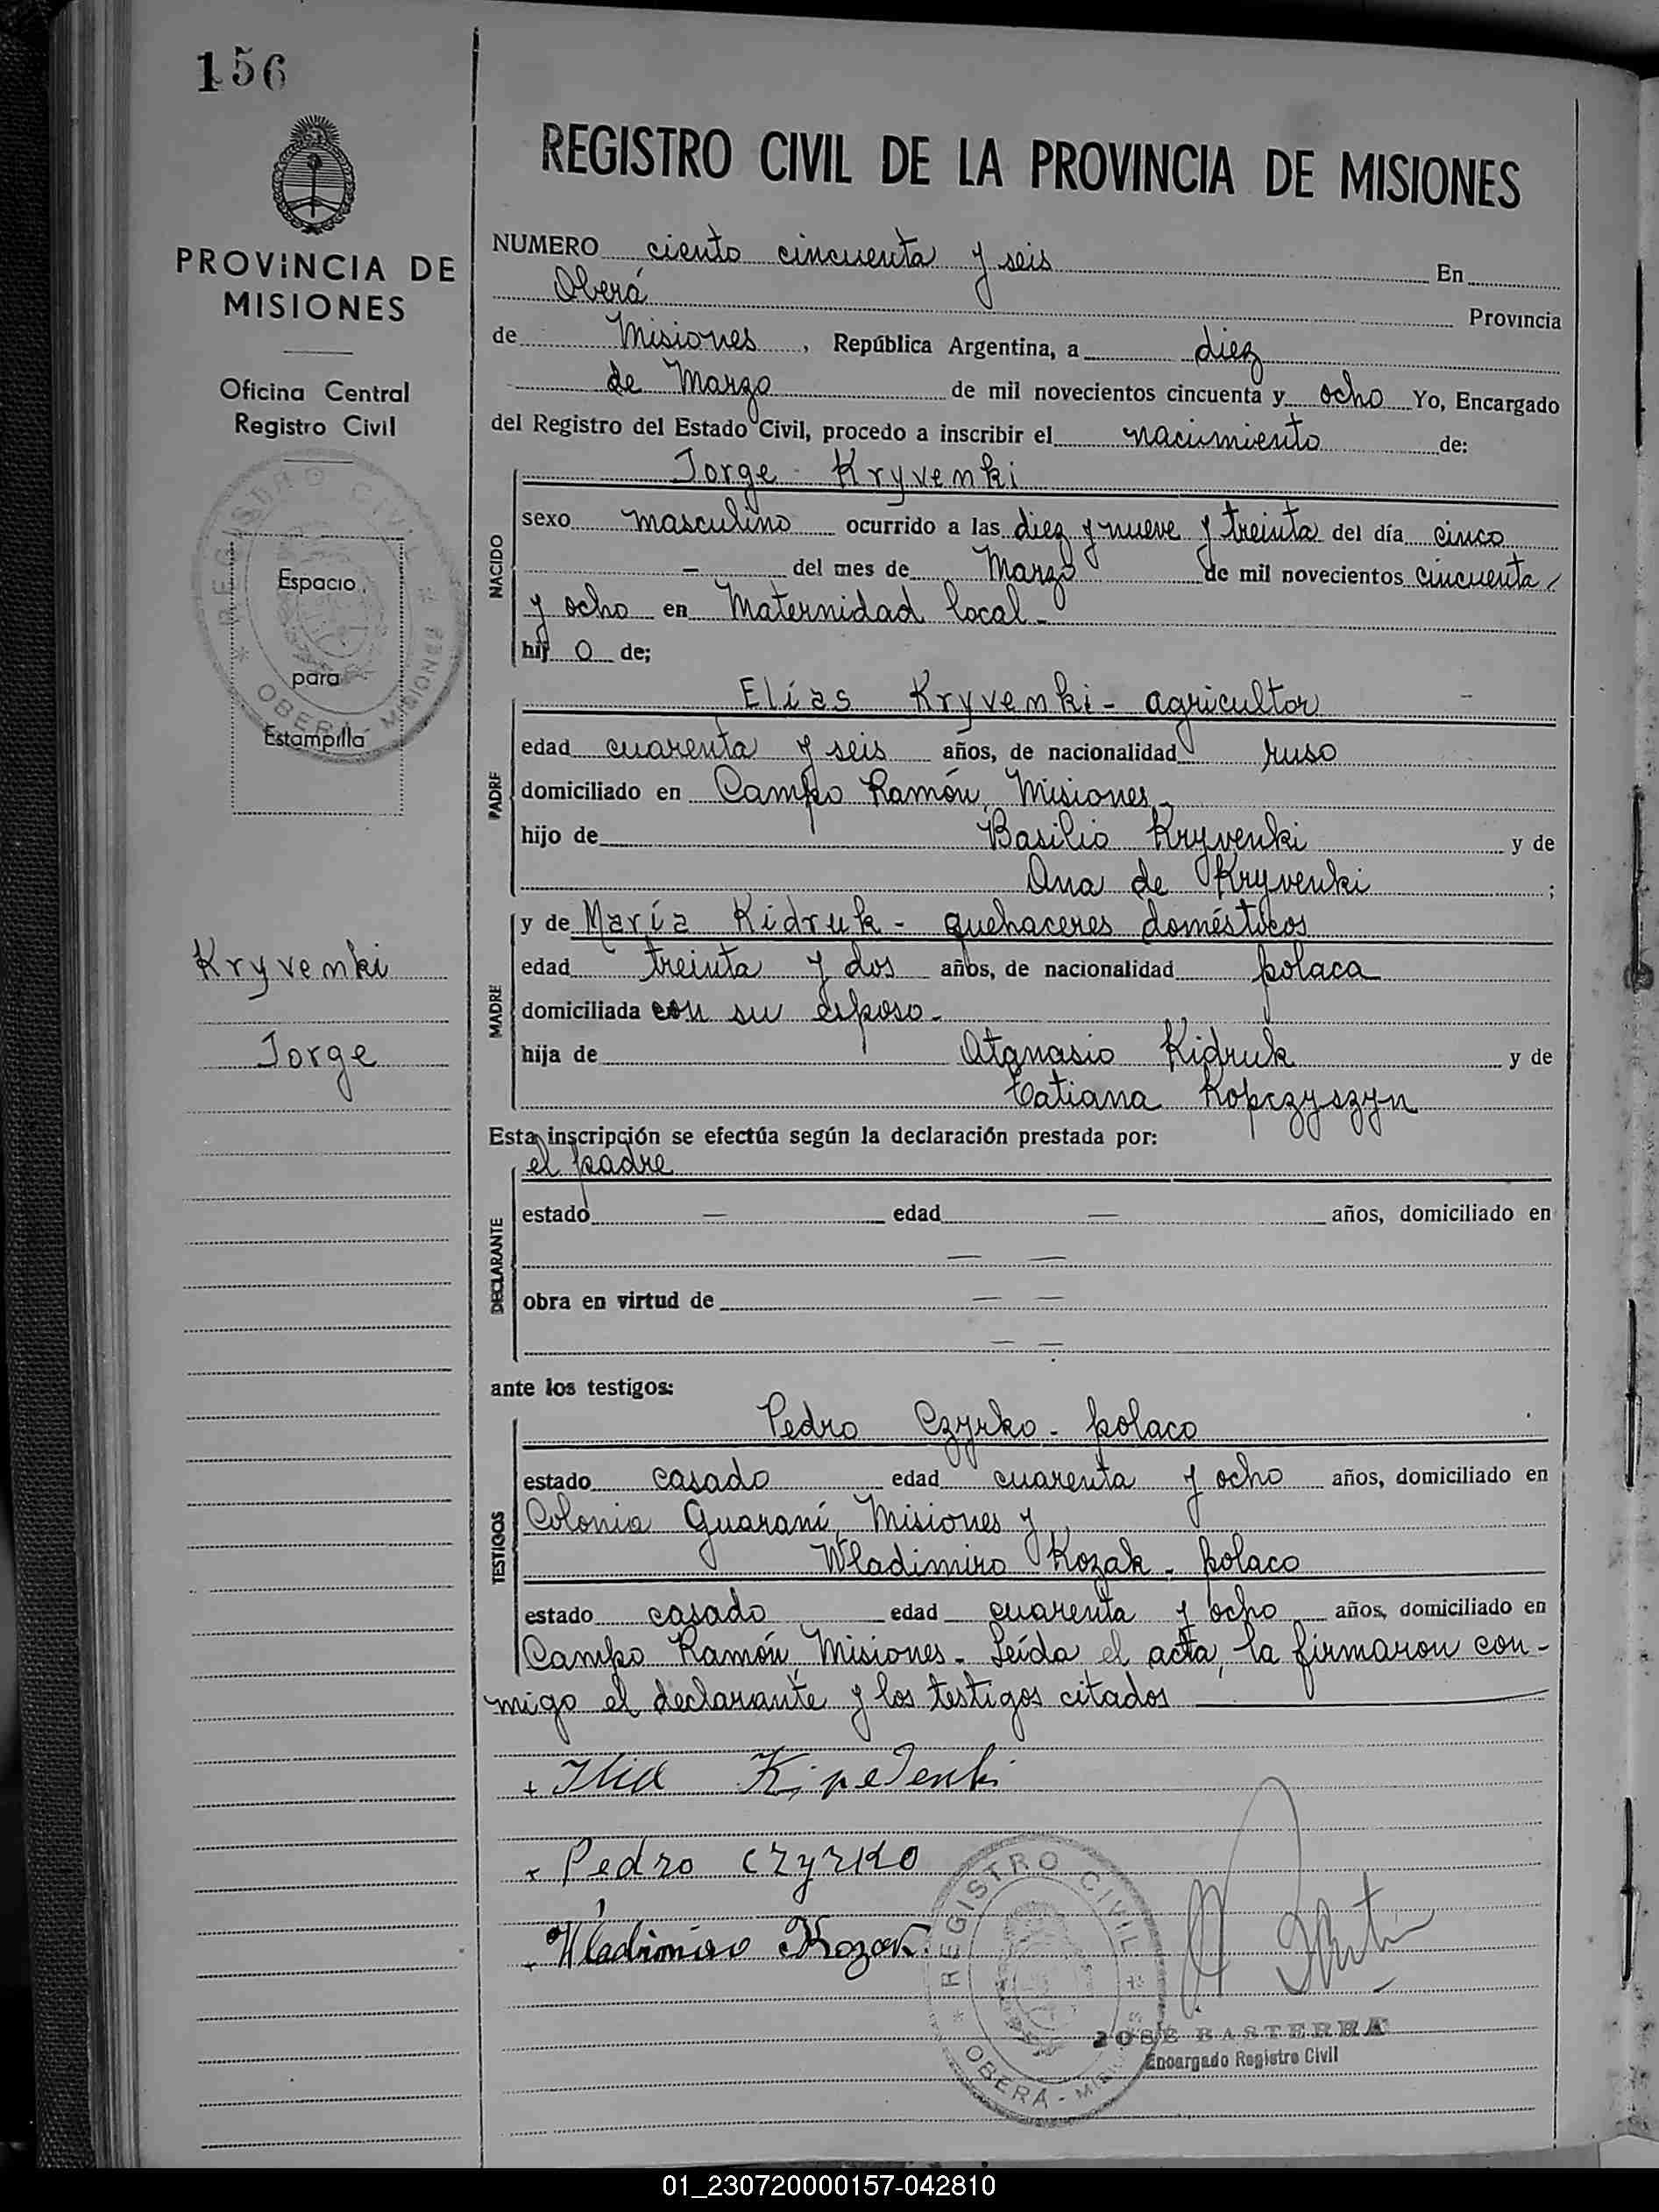 156
PROVINCIA DE
MISIONES
Oficina Central
Registro Civil
REGISTRO CIVIL
OBERA - MISIONES
Espacio
para
Estampilla
Kryvenki
Jorge
REGISTRO CIVIL DE LA PROVINCIA DE MISIONES
NUMERO ciento cincuenta y seis En
Oberá Provincia
de Misiones, República Argentina, a diez
de Marzo de mil novecientos cincuenta y ocho Yo, Encargado
del Registro del Estado Civil, procedo a inscribir el nacimiento de:
Jorge Kryvenki
NACIDO
sexo masculino ocurrido a las diez y nueve y treinta del día cinco
— del mes de Marzo de mil novecientos cincuenta
y ocho en Maternidad local -
hij o de;
PADRE
Elías Kryvenki - agricultor
edad cuarenta y seis años, de nacionalidad ruso
domiciliado en Campo Ramón, Misiones -
hijo de Basilio Kryvenki y de
Ana de Kryvenki ;
MADRE
y de María Kidruk - quehaceres domésticos
edad treinta y dos años, de nacionalidad polaca
domiciliada con su esposo -
hija de Atanasio Kidruk y de
Tatiana Kopczyszyn
Esta inscripción se efectúa según la declaración prestada por:
DECLARANTE
el padre
estado — edad — años, domiciliado en
— —
obra en virtud de — —
— —
ante los testigos:
TESTIGOS
Pedro Czyrko - polaco
estado casado edad cuarenta y ocho años, domiciliado en
Colonia Guaraní, Misiones y
Wladimiro Kozak - polaco
estado casado edad cuarenta y ocho años, domiciliado en
Campo Ramón, Misiones - Leída el acta, la firmaron con-
migo el declarante y los testigos citados
Pedro Czyrko
Wladimiro Kozak
REGISTRO CIVIL
OBERA - MISIONES
JOSE BASTERRA
Encargado Registro Civil
01_230720000157-042810